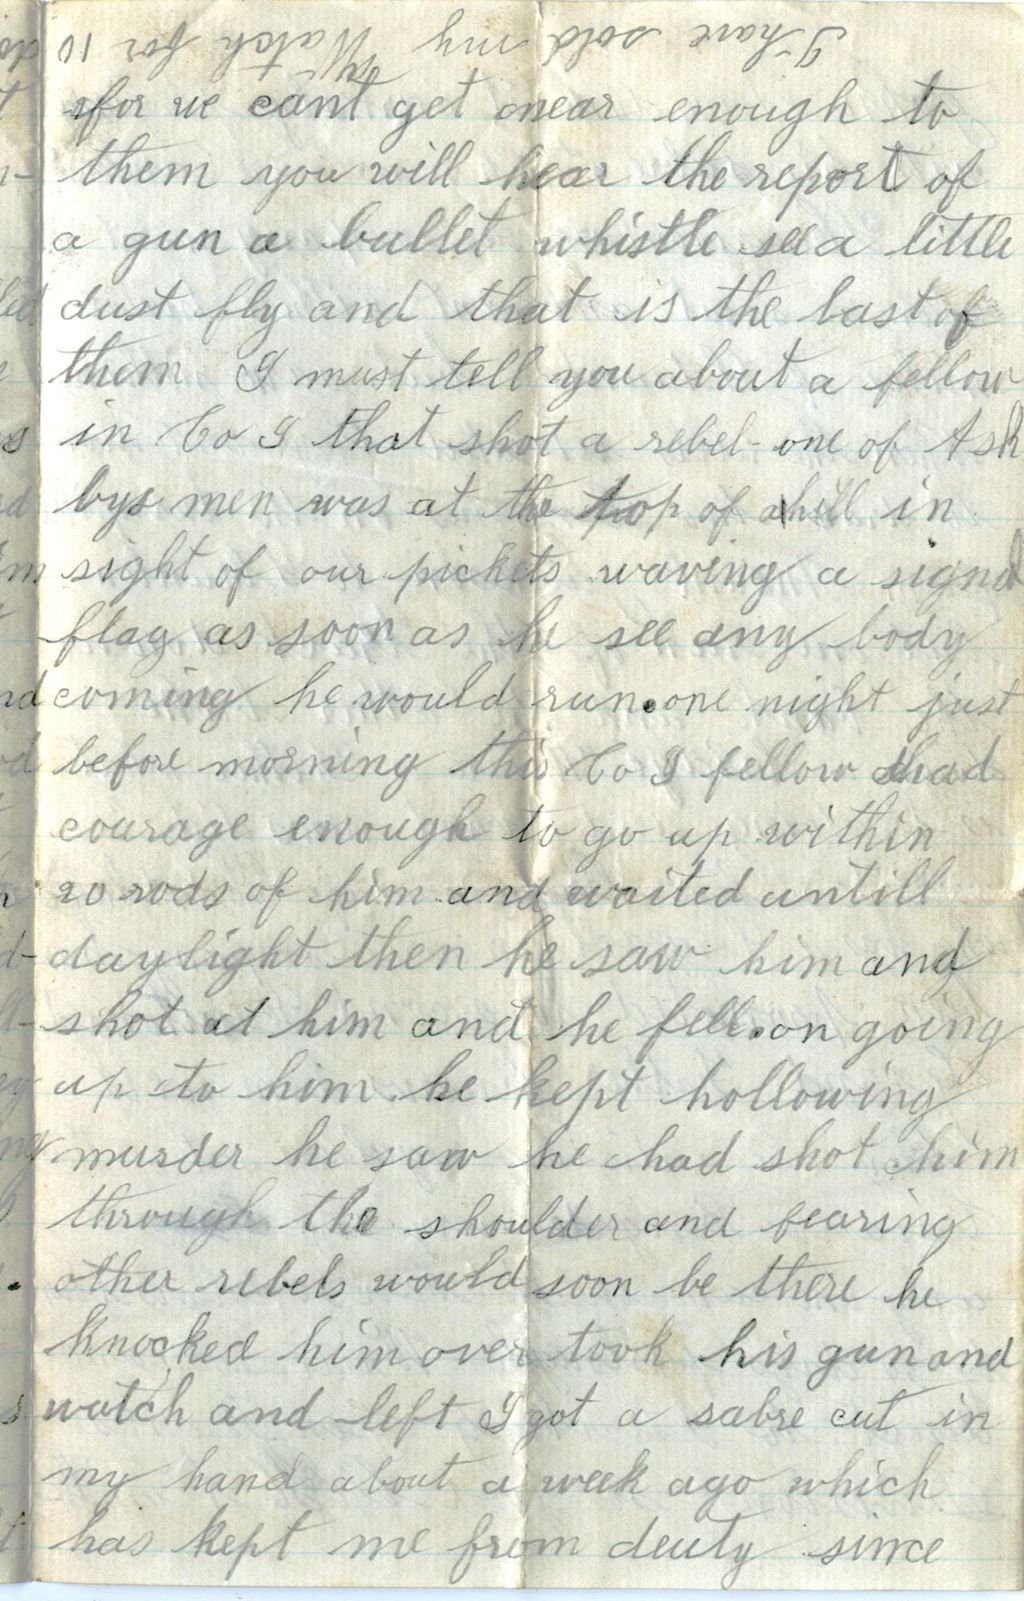 I have sold my Watch for 10
for we cant get near enough to
them you will hear the report of
a gun a bullet whistle see a little
dust fly and that is the last of
them I must tell you about a fellow
in Co I that shot a rebel - one of Ash
bys men was at the top of a hill in
sight of our pickets waving a signal
flag as soon as he see any body
coming he would run. one night just
before morning this Co I fellow had
courage enough to go up within
20 rods of him and waited untill
daylight then he saw him and
shot at him and he fell. on going
up to him he kept hollowing
murder he saw he had shot him
through the shoulder and fearing
other rebels would soon be there he
knocked him over took his gun and
watch and left I got a sabre cut in
my hand about a week ago which
has kept me from deuty since